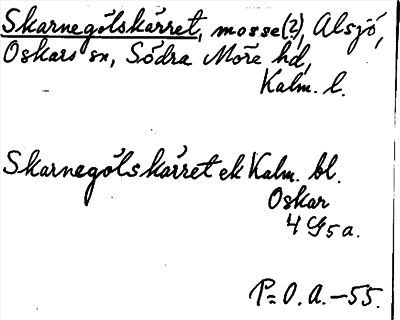 Skarnegölskärret, mosse(?), Alsjö,
Oskars sn, Södra Möre hd,
Kalm. l.
Skarnegölskärret ek Kalm. bl.
Oskar
4 G 5 a.
P=O.A.-55.